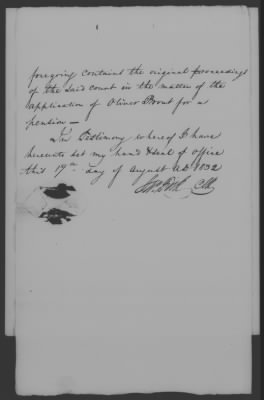 foregoing contains the original proceedings
of the said court in the matter of the
application of Oliver Prout for a
pension —
In Testimony whereof I have
hereunto set my hand & seal of office
this 19th day of August AD 1832
Clk